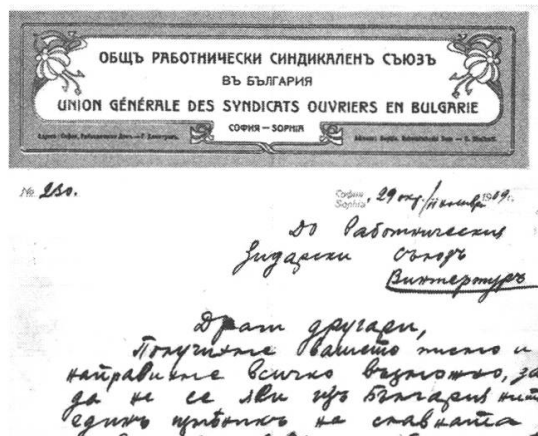 ОБЩЪ РАБОТНИЧЕСКИ СИНДИКАЛЕНЪ СЪЮЗЪ
ВЪ БЪЛГАРИЯ
UNION GÉNÉRALE DES SYNDICATS OUVRIERS EN BULGARIE
СОФИЯ — SOPHIA
Адресъ: София, Работнически Домъ — Г.
Adresse: Sophia, Dom — G.
№ 230.
София
Sophia, 29 окт./11 ноемврий 1909 г.
До Работническия
Зидарски Съюзъ
Винтертуръ
Драги другари,
Получихме вашето писмо и
направихме всичко възможно, за
да не се яви изъ България нито
единъ на славната